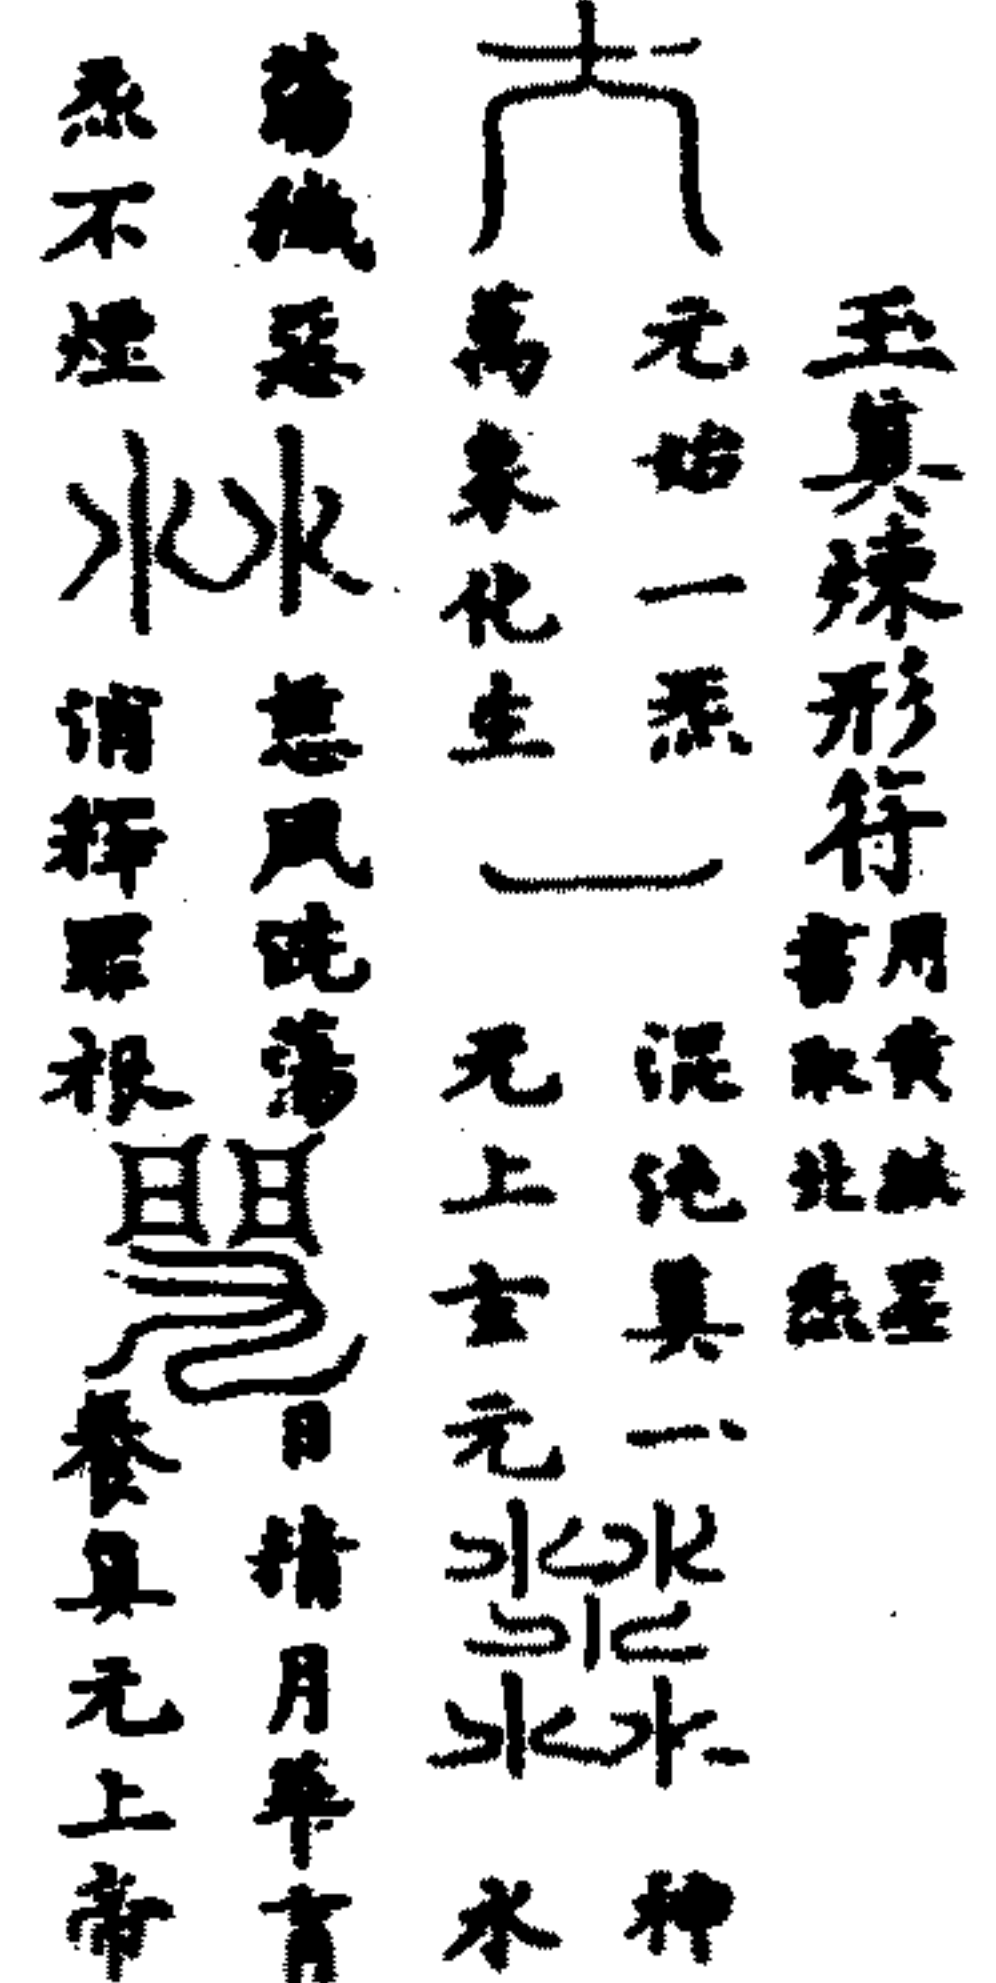 玉真煉形符
用黃紙墨
書取北炁
元始一炁
混沌真一
神
萬象化生
无上玄元
水
蕩穢惡
慈風晄蕩
日精月華育
炁不煙
消揮罪根
養真元上帝